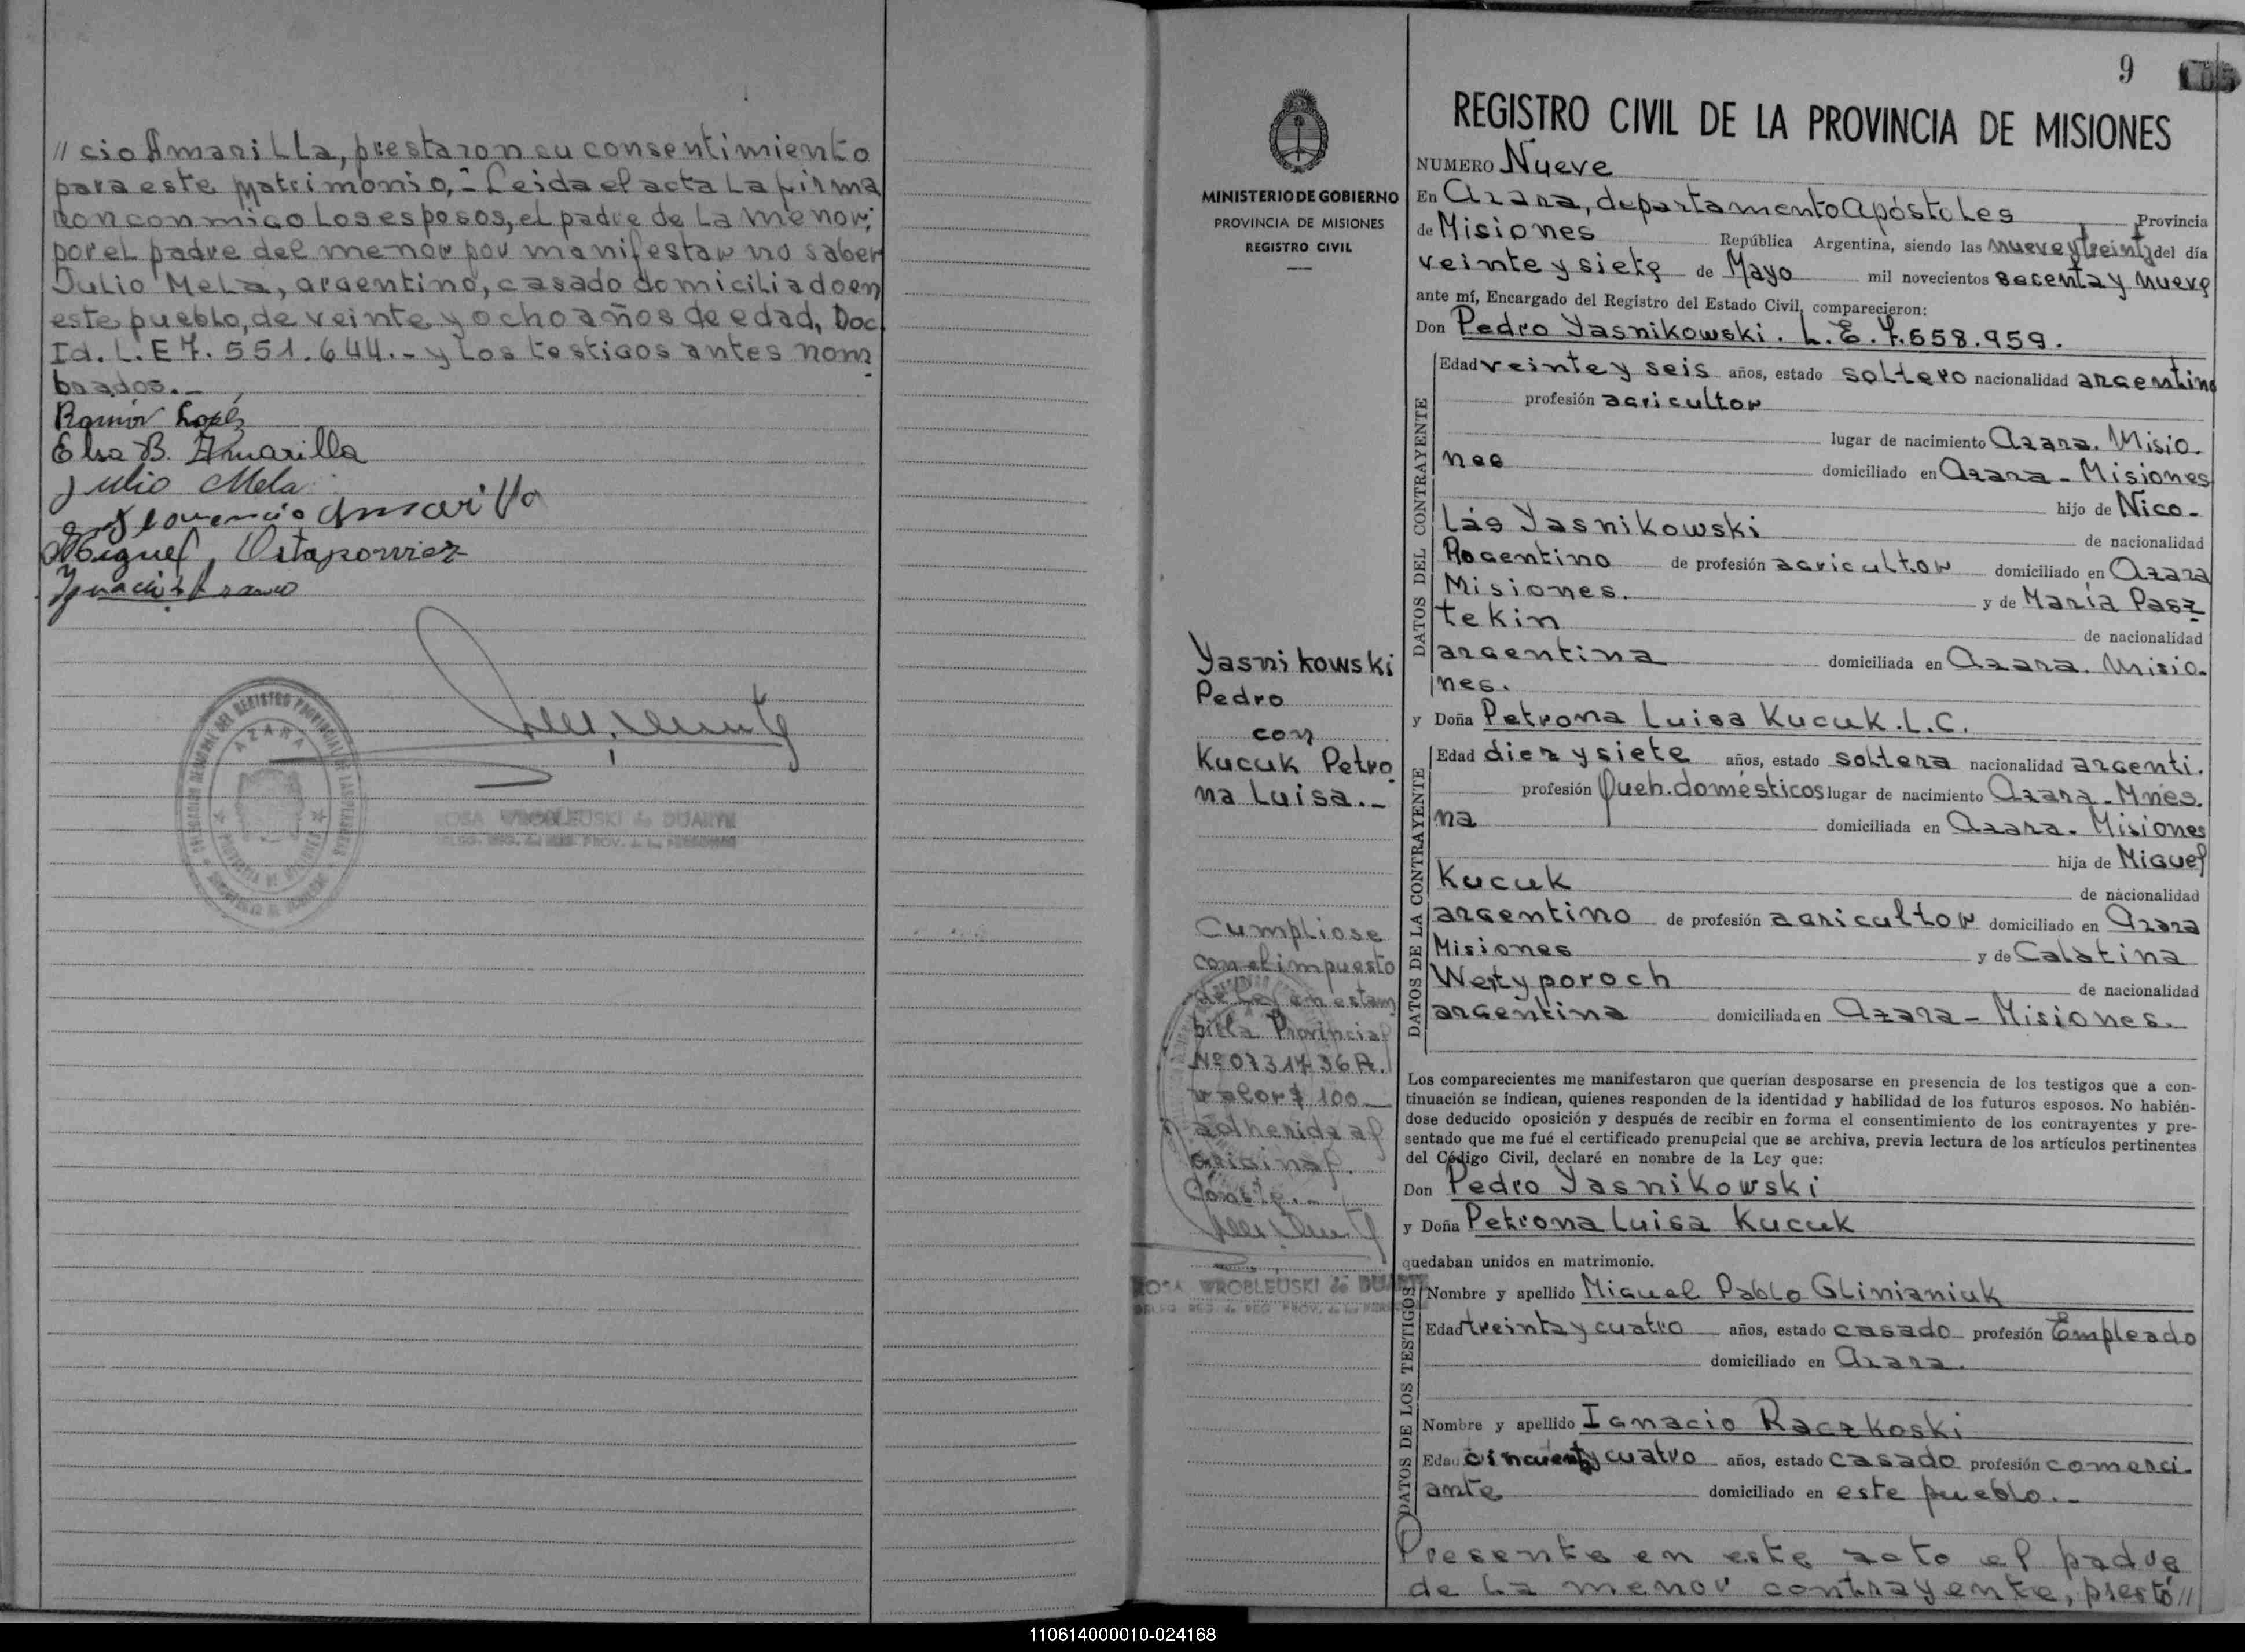 // cio Amarilla, prestaron su consentimiento
para este matrimonio,- Leida el acta la firma
ron conmigo los esposos, el padre de la menor;
por el padre del menor por manifestar no saber
Julio Mela, argentino, casado domiciliado en
este pueblo, de veinte y ocho años de edad, Doc.
Id. L.E 7.551.644.- y los testigos antes nom
brados.-
Ramón López
Elsa B. Amarilla
Julio Mela
Amarilla
Miguel Ostapowicz
DELEGACION DEL REGISTRO PROVINCIAL DE LAS PERSONAS
AZARA
PROVINCIA DE MISIONES
ROSA WROBLEUSKI de DUARTE
9
MINISTERIO DE GOBIERNO
PROVINCIA DE MISIONES
REGISTRO CIVIL
Yasnikowski
Pedro
con
Kucuk Petro
na Luisa.-
Cumpliose
con el impuesto
de Ley en estam
pilla Provincial
Nº 0731736 A.
valor $ 100_
adherida al
original.
Conste.-
ROSA WROBLEUSKI de DUARTE
REGISTRO CIVIL DE LA PROVINCIA DE MISIONES
NUMERO Nueve
En Azara, departamento Apóstoles Provincia
de Misiones República Argentina, siendo las nueve y treinta del día
veinte y siete de Mayo mil novecientos secenta y nueve
ante mí, Encargado del Registro del Estado Civil, comparecieron:
Don Pedro Yasnikowski. L.E.7.558.959.
DATOS DEL CONTRAYENTE
Edad veinte y seis años, estado soltero nacionalidad argentino
profesión agricultor
lugar de nacimiento Azara. Misio-
nes domiciliado en Azara - Misiones
hijo de Nico-
lás Yasnikowski
de nacionalidad
Argentino de profesión agricultor domiciliado en Azara
Misiones. y de María Pasz
tekin
de nacionalidad
argentina domiciliada en Azara. Misio-
nes.
y Doña Petrona Luisa Kucuk. L.C.
DATOS DE LA CONTRAYENTE
Edad diez y siete años, estado soltera nacionalidad argenti-
profesión Queh. domésticos lugar de nacimiento Azara - Mnes.
na domiciliada en Azara. Misiones
hija de Miguel
Kucuk
de nacionalidad
argentino de profesión agricultor domiciliado en Azara
Misiones y de Catatina
Wertyporoch
de nacionalidad
argentina domiciliada en Azara - Misiones.
Los comparecientes me manifestaron que querían desposarse en presencia de los testigos que a con-
tinuación se indican, quienes responden de la identidad y habilidad de los futuros esposos. No habién-
dose deducido oposición y después de recibir en forma el consentimiento de los contrayentes y pre-
sentado que me fué el certificado prenupcial que se archiva, previa lectura de los artículos pertinentes
del Código Civil, declaré en nombre de la Ley que:
Don Pedro Yasnikowski
y Doña Petrona Luisa Kucuk
quedaban unidos en matrimonio.
DATOS DE LOS TESTIGOS
Nombre y apellido Miguel Pablo Glinianiuk
Edad treinta y cuatro años, estado casado profesión Empleado
domiciliado en Azara.
Nombre y apellido Ignacio Raczkoski
Edad cincuenta y cuatro años, estado casado profesión comerci-
ante domiciliado en este pueblo.-
Presente en este acto el padre
de la menor contrayente, prestó //
110614000010-024168